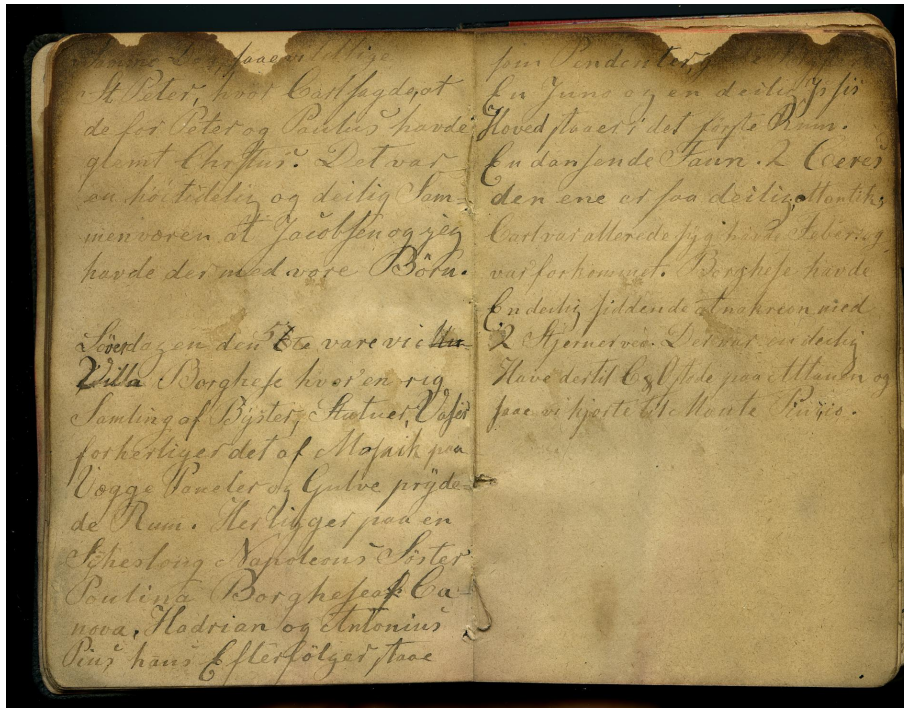 St. Peter, hvor Carl sagde, at
de for Peter og Paulus havde
glemt Christus. Det var
en höitidelig og deilig Sam-
menværen at Jacobsen og jeg
havde der med vore Börn.
Löverdagen den 5te vare vi i
Villa Borghese hvor en rig
Samling af Byster, Statuer, Vaser
forherliger det af Mosaik paa
Vægge Paneler og Gulve pryde-
de Rum. Her ligger paa en
Scheslong Napoleons Söster
Paulina Borghese af Ca-
nova. Hadrian og Antonius
Pius hans Efterfölger staae
som Pendenter,
En Juno og en deilig Issis
Hoved staaer i det förste Rum.
En dansende Faun. 2 Ceres
den ene er saa deilig, Atlantik,
Carl var allerede syg havde Feber og
var forkommet. Borghese havde
En deilig siddende Anakreon med
2 Stjerner ved. Der var en deilig
Have dertil Og Ostede paa Altanen og
saae vi kjörte til Monte Pincio.